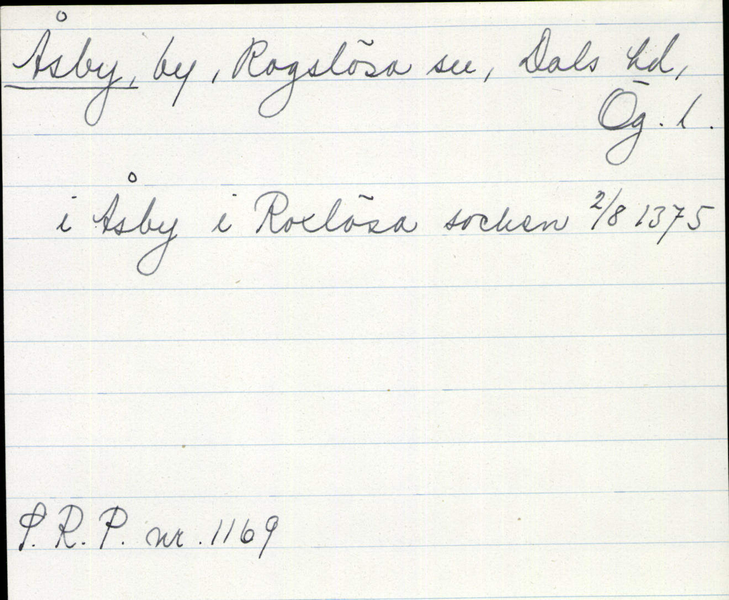 Åsby, by, Rogslösa sn, Dals hd,
Ög. l.
i Åsby i Roxlösa socken 2/8 1375
S.R.P. nr. 1169